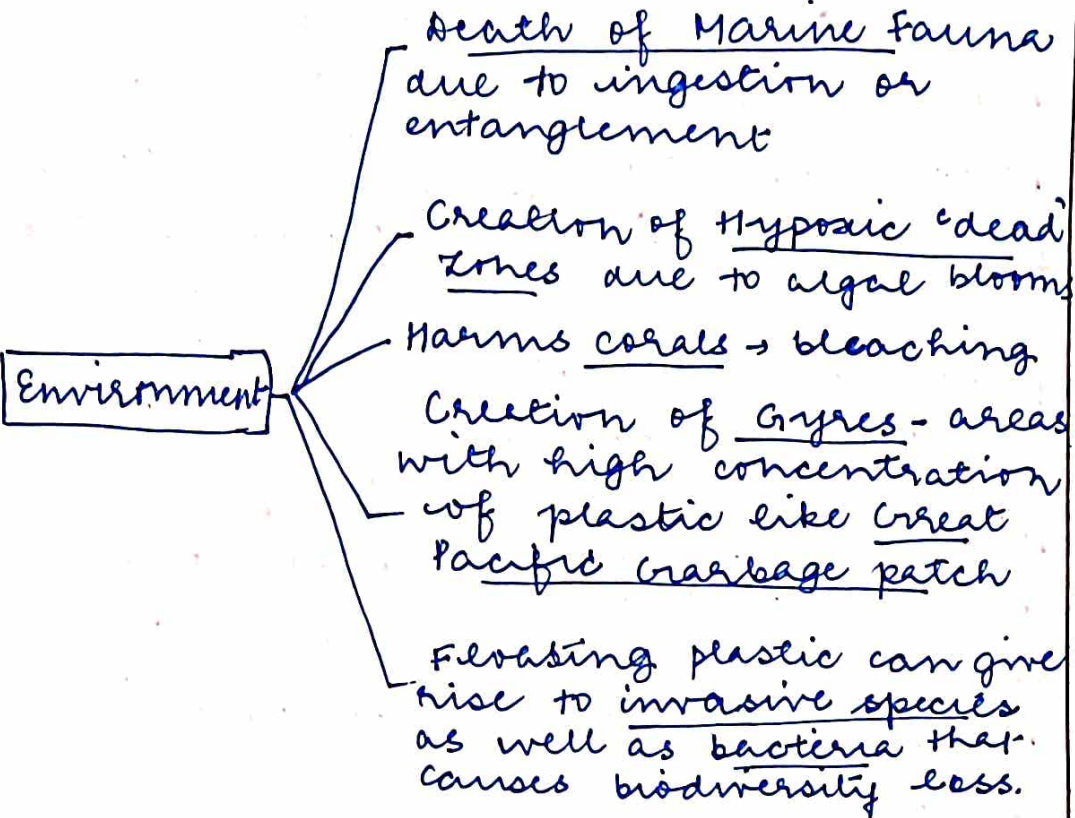 Death of Marine Fauna
due to ingestion or
entanglement
Creation of Hypoxic 'dead'
zones due to algal blooms
Harms corals → bleaching
Environment
Creation of Gyres - areas
with high concentration
of plastic like Great
Pacific Garbage patch
Floating plastic can give
rise to invasive species
as well as bacteria that
causes biodiversity loss.